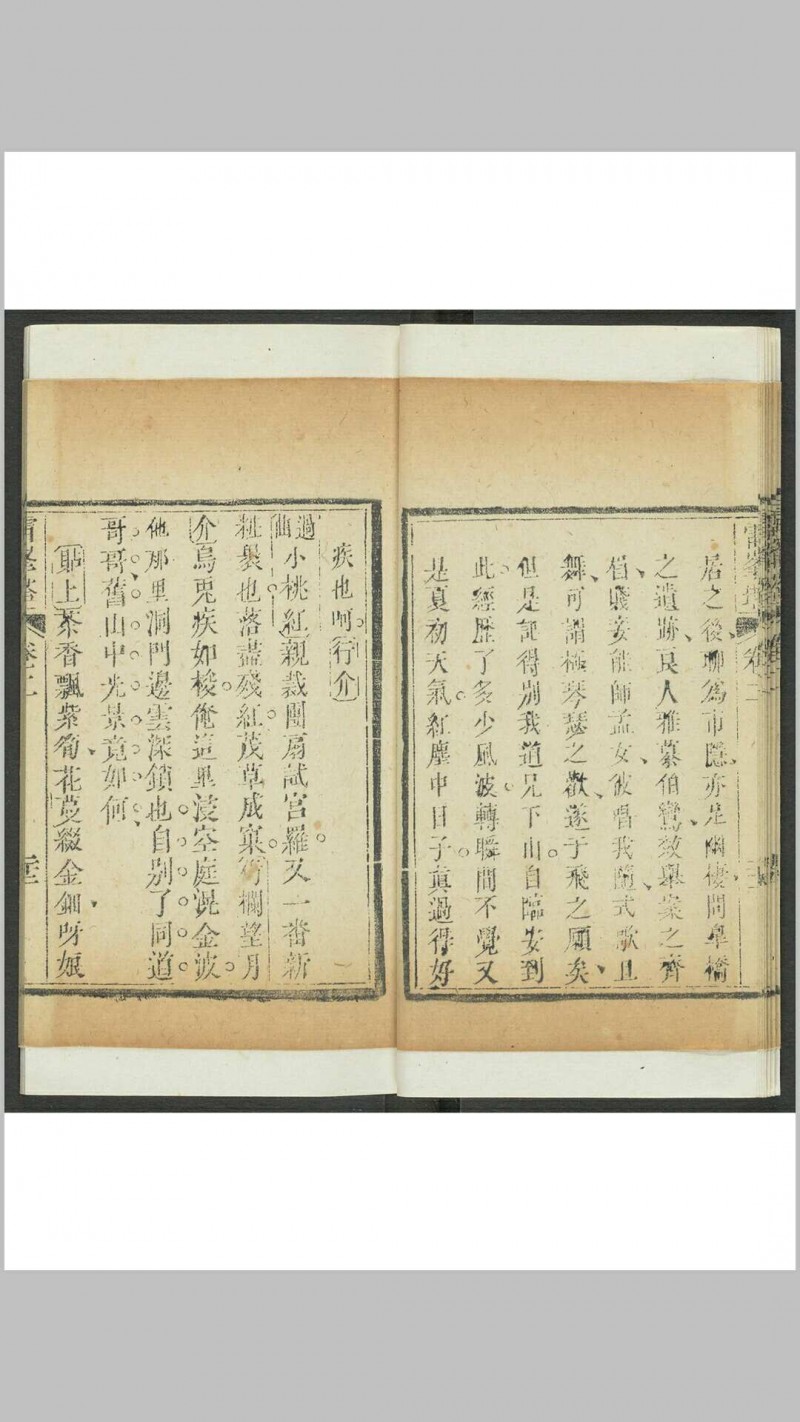 雷峯塔 卷二
居之後聊爲市隱亦是幽棲問臯橋
之遺跡良人雅慕伯鸞效舉案之齊
眉賤妾能師孟女彼唱我隨式歌且
舞可謂極琴瑟之歡遂于飛之願矣
但是記得別我道兄下山自臨安到
此經歷了多少風波轉瞬間不覺又
是夏初天氣紅塵中日子眞過得好
疾也呵行介
過
仙小桃紅親裁團扇試宮羅又一番新
粧裹也落盡殘紅茂草成窠倚欄望月
介烏兎疾如梭俺這里浸空庭漾金波
他那里洞門邊雲深鎖也自別了同道
哥哥舊山中光景竟如何
貼上茶香飄紫筍花蔓綴金鈿呀娘
雷峯塔 卷二